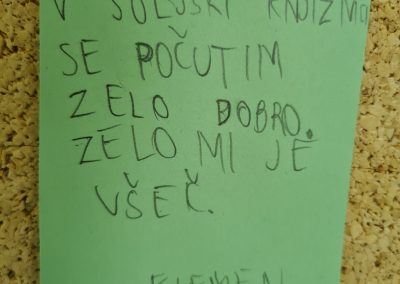 V ŠOLSKI KNJIŽNI
SE POČUTIM
ZELO DOBRO.
ZELO MI JE
VŠEČ.